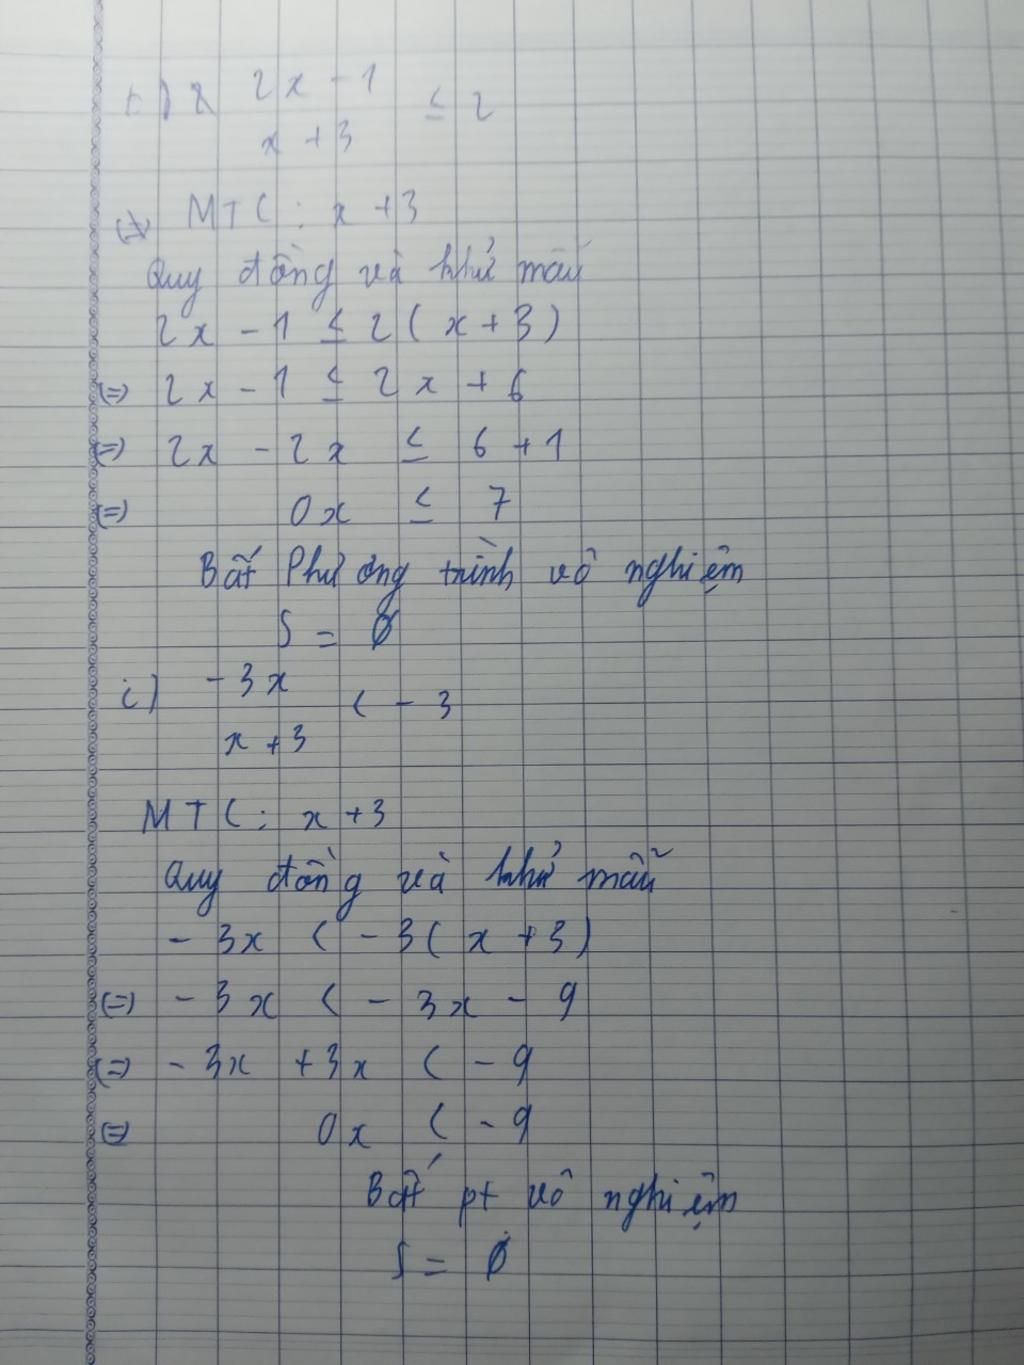 2x - 1
≤ 2
x + 3
MTC : x + 3
Quy đồng và khử mẫu
2x - 1 ≤ 2 ( x + 3 )
(=) 2x - 1 ≤ 2x + 6
(=) 2x - 2x ≤ 6 + 1
(=) 0x ≤ 7
Bất Phương trình vô nghiệm
S = Ø
c) -3x
< - 3
x + 3
MTC : x + 3
Quy đồng và khử mẫu
- 3x < - 3 ( x + 3 )
(=) - 3x < - 3x - 9
(=) - 3x + 3x < - 9
(=) 0x < - 9
Bất pt vô nghiệm
S = Ø